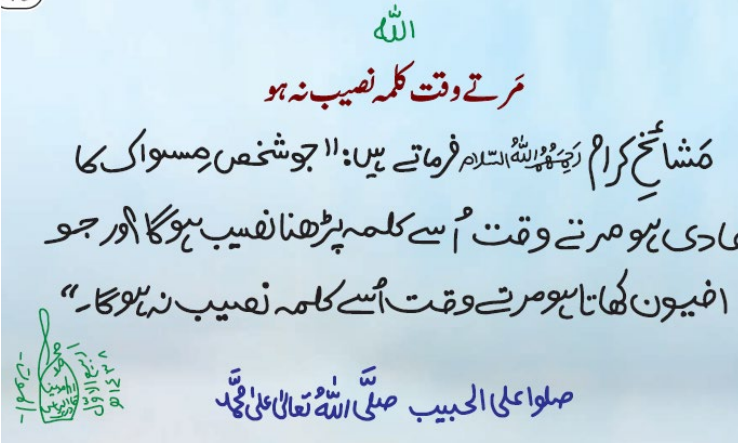 اللہ
مَرتے وقت کلمہ نصیب نہ ہو
مَشائخِ کرام رَحِمَہُمُ اللہُ السَّلَام فرماتے ہیں: "جو شخص مِسواک کا
عادی ہو مرتے وقت اُسے کلمہ پڑھنا نصیب ہوگا اور جو
افیون کھاتا ہو مرتے وقت اُسے کلمہ نصیب نہ ہوگا۔"
صلوا علی الحبیب صلَّی اللہُ تعالیٰ علیٰ محمَّد